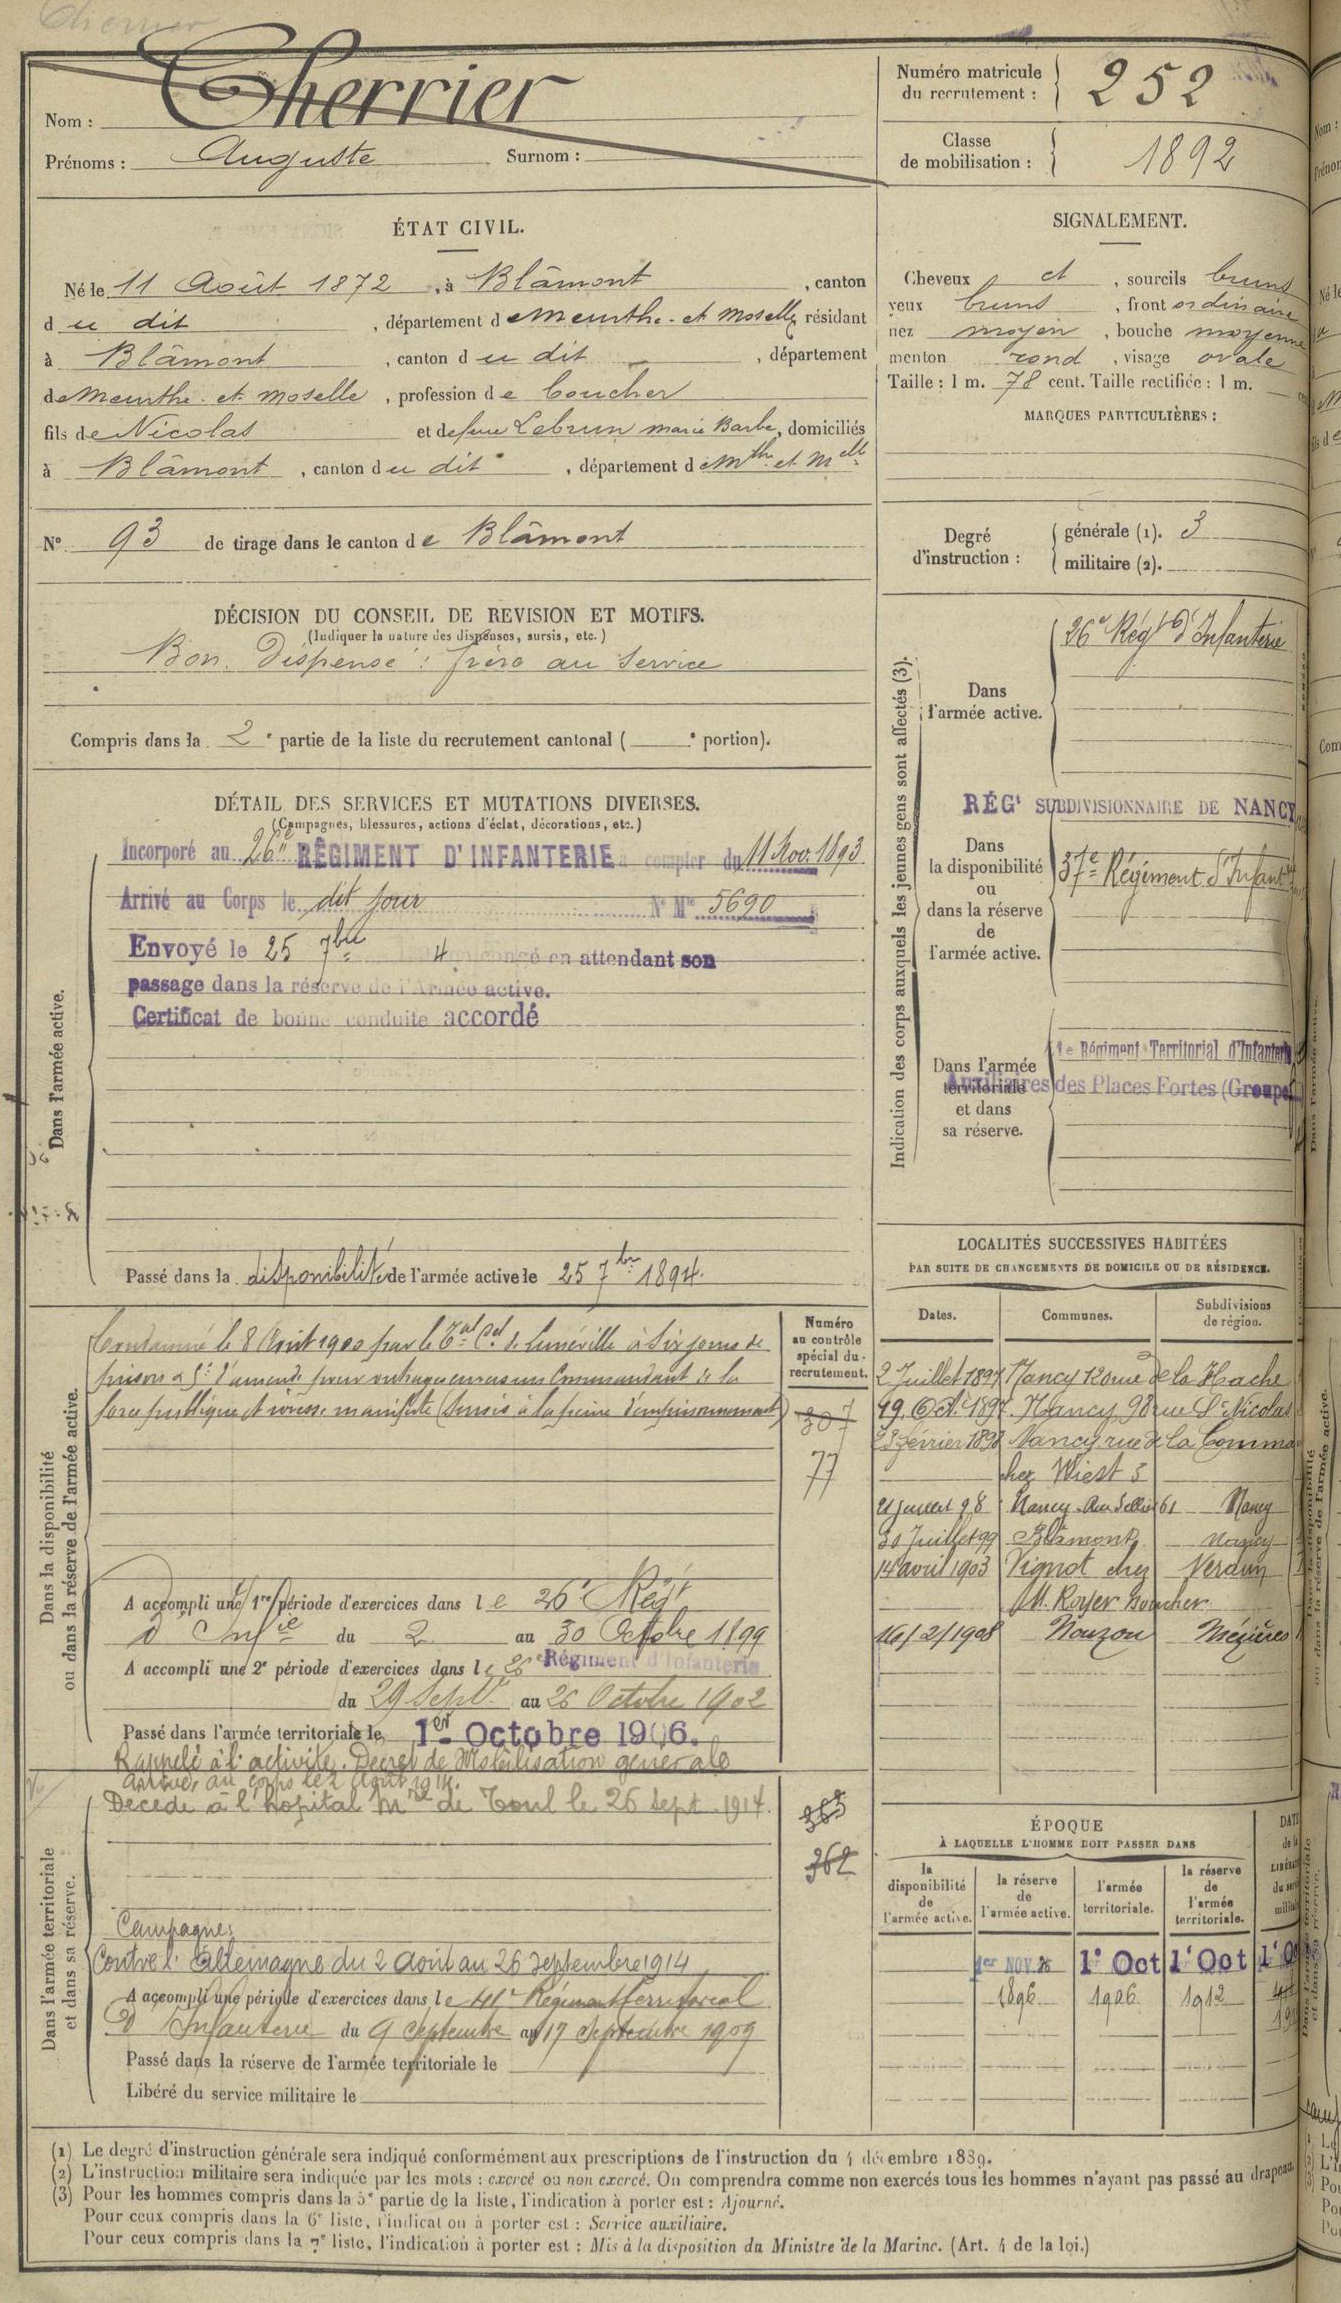 Cherrier
Nom : Cherrier
Prénoms : Auguste Surnom :
Numéro matricule
du recrutement : 252
Classe
de mobilisation : 1892
ÉTAT CIVIL.
Né le 11 Août 1872, à Blâmont, canton
du dit, département de Meurthe-et-Moselle, résidant
à Blâmont, canton du dit, département
de Meurthe-et-Moselle, profession de boucher
fils de Nicolas et de feue Lebrun Marie Barbe, domiciliés
à Blâmont, canton du dit, département de Mthe et Mlle
N° 93 de tirage dans le canton de Blâmont
SIGNALEMENT.
Cheveux et, sourcils bruns
yeux bruns, front ordinaire
nez moyen, bouche moyenne
menton rond, visage ovale
Taille : 1 m. 78 cent. Taille rectifiée : 1 m.
MARQUES PARTICULIÈRES :
Degré
d'instruction :
générale (1). 3
militaire (2).
DÉCISION DU CONSEIL DE REVISION ET MOTIFS.
(Indiquer la nature des dispenses, sursis, etc.)
Bon. Dispensé : frère au service
Compris dans la 2e partie de la liste du recrutement cantonal ( e portion).
DÉTAIL DES SERVICES ET MUTATIONS DIVERSES.
(Campagnes, blessures, actions d'éclat, décorations, etc.)
Dans l'armée active.
Incorporé au 26e RÉGIMENT D'INFANTERIE à compter du 11 Nov. 1893
Arrivé au Corps le dit jour N° Mle 5690
Envoyé le 25 7bre 4 en congé en attendant son
passage dans la réserve de l'Armée active.
Certificat de bonne conduite accordé
Passé dans la disponibilité de l'armée active le 25 7bre 1894.
Indication des corps auxquels les jeunes gens sont affectés (3).
Dans
l'armée active.
26e Régt d'Infanterie
RÉGt SUBDIVISIONNAIRE DE NANCY
Dans
la disponibilité
ou
dans la réserve
de
l'armée active.
37e Régiment d'Infant
Dans l'armée
territoriale
et dans
sa réserve.
Régiment Territorial d'Infanterie
Auxiliaires des Places Fortes (Groupe
Dans la disponibilité
ou dans la réserve de l'armée active.
Condamné le 8 Août 1900 par le Tal Cel de Lunéville à Six jours de
prison et 5f d'amende pour outrages envers un Commandant de la
force publique et ivresse manifeste (Sursis à la peine d'emprisonnement)
Numéro
au contrôle
spécial du
recrutement.
307
77
A accompli une 1re période d'exercices dans le 26e Régt
d'Infie du 2 au 30 Octobre 1899
A accompli une 2e période d'exercices dans le 26e Régiment d'Infanterie
du 29 Septe au 26 Octobre 1902
Passé dans l'armée territoriale le 1er Octobre 1906.
Rappelé à l'activité. Décret de Mobilisation générale
arrivé au corps le 2 Août 1914.
Dans l'armée territoriale
et dans sa réserve.
Décédé à l'hôpital Mre de Toul le 26 Sept. 1914.
365
362
Campagnes
Contre l'Allemagne du 2 Août au 26 Septembre 1914
A accompli une période d'exercices dans le 41e Régiment territorial
d'Infanterie du 9 Septembre au 17 Septembre 1909
Passé dans la réserve de l'armée territoriale le
Libéré du service militaire le
LOCALITÉS SUCCESSIVES HABITÉES
PAR SUITE DE CHANGEMENTS DE DOMICILE OU DE RÉSIDENCE.
Dates. Communes. Subdivisions de région.
2 Juillet 1897 Nancy 120 rue de la Hache
19 Oct. 1897. Nancy 98 rue St Nicolas
Février 1898 Nancy rue de la Comma
chez Wiest 5
21 Juillet 98 Nancy 61 Nancy
30 Juillet 99 Blâmont Nancy
14 avril 1903 Vignot chez Verdun
M. Royer boucher
16/2/1908 Nouzon Mézières
ÉPOQUE
À LAQUELLE L'HOMME DOIT PASSER DANS
la disponibilité de l'armée active. la réserve de l'armée active. l'armée territoriale. la réserve de l'armée territoriale.
1er NOV. 1er Oct 1er Oct
1896 1906 1912
(1) Le degré d'instruction générale sera indiqué conformément aux prescriptions de l'instruction du 4 décembre 1889.
(2) L'instruction militaire sera indiquée par les mots : exercé ou non exercé. On comprendra comme non exercés tous les hommes n'ayant pas passé au drapeau.
(3) Pour les hommes compris dans la 5e partie de la liste, l'indication à porter est : Ajourné.
Pour ceux compris dans la 6e liste, l'indication à porter est : Service auxiliaire.
Pour ceux compris dans la 7e liste, l'indication à porter est : Mis à la disposition du Ministre de la Marine. (Art. 4 de la loi.)